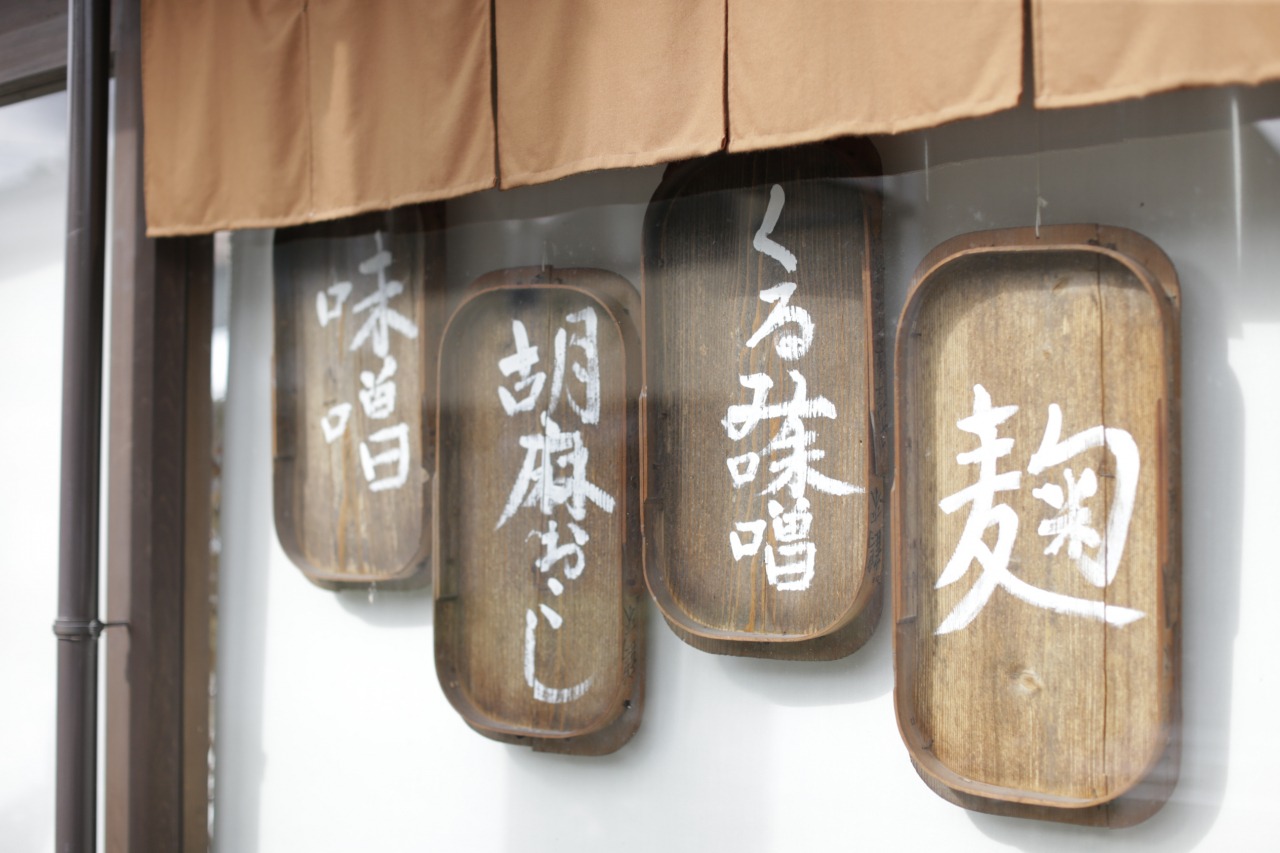 麹
くるみ味噌
胡麻おこし
味噌